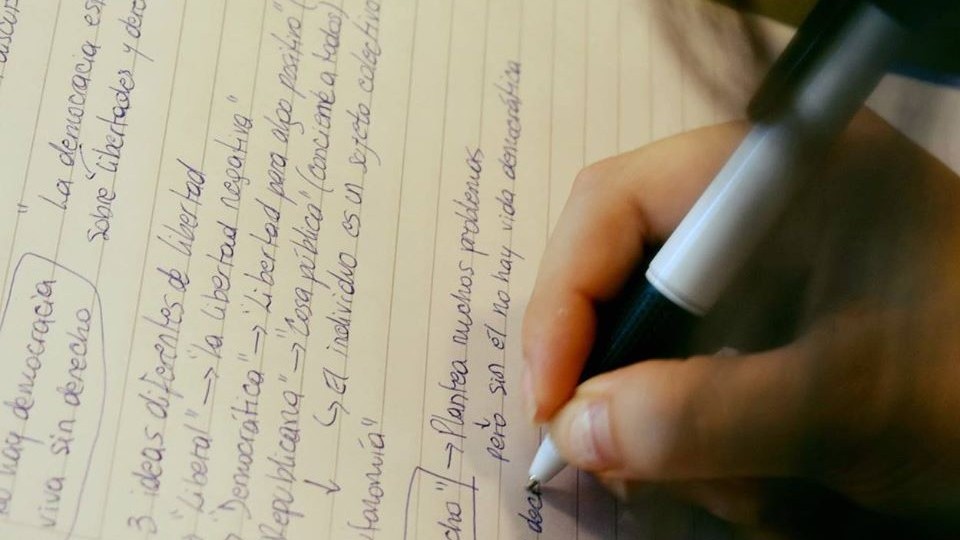 no hay democracia
viva sin derecho
La democracia es
sobre libertades y
3 ideas diferentes de libertad
"Liberal" → "la libertad negativa"
"Democrática" → "Libertad para algo positivo"
Republicana" → "Cosa pública" (concierne a todos)
↓ ↳ El individuo es un sujeto colectivo
tonomía"
cho" → Plantea muchos problemas
pero sin él no hay vida democrática